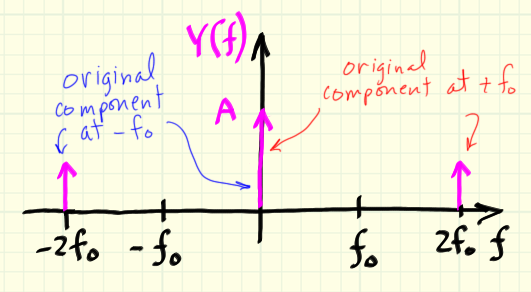 Y(f)
original
component
at -f₀
original
component at +f₀
A
-2f₀
-f₀
f₀
2f₀
f